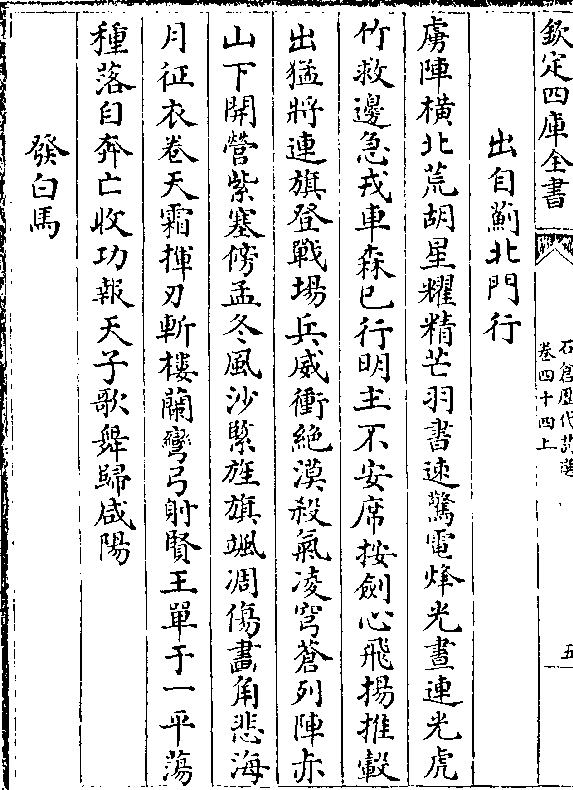 欽定四庫全書
石倉歷代詩選
卷四十四上
五
出自薊北門行
虜陣橫北荒胡星耀精芒羽書速驚電烽光晝連光虎
竹救邊急戎車森已行明主不安席按劍心飛揚推轂
出猛將連旗登戰場兵威衝絶漠殺氣凌穹蒼列陣赤
山下開營紫塞傍孟冬風沙緊旌旗颯凋傷畫角悲海
月征衣卷天霜揮刃斬樓蘭彎弓射賢王單于一平蕩
種落自奔亡收功報天子歌舞歸咸陽
發白馬